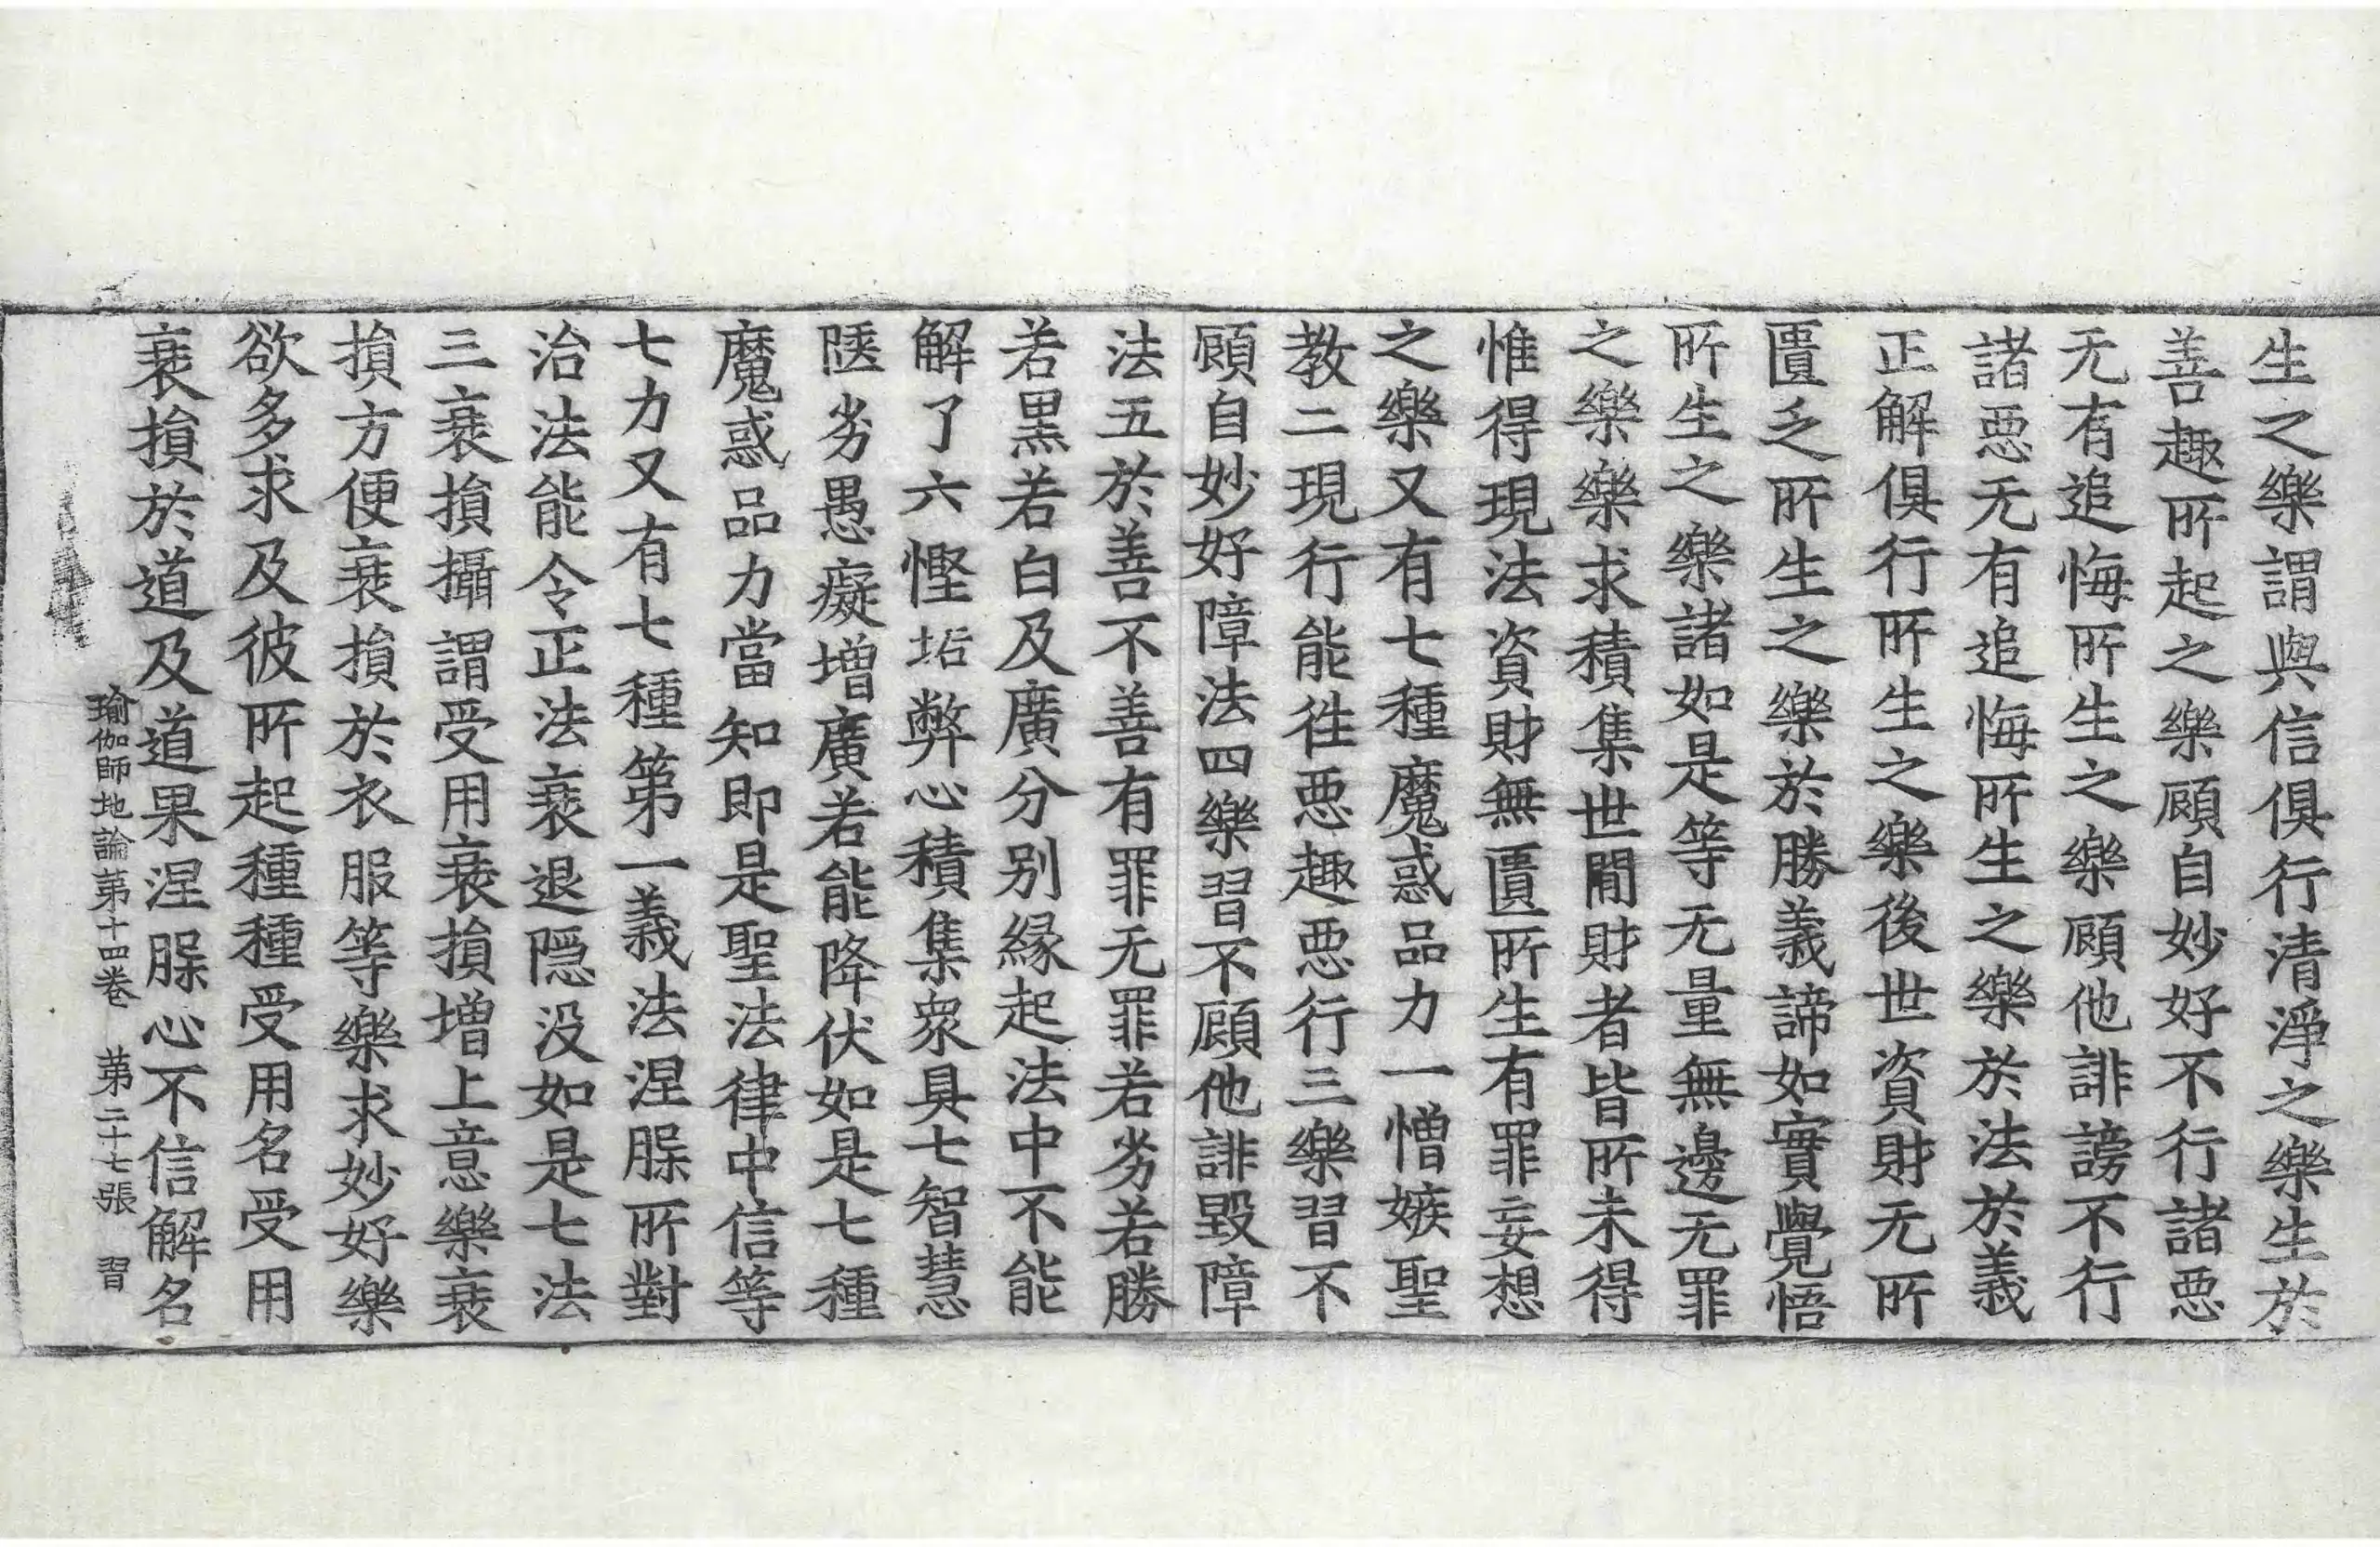 生之樂謂與信俱行清淨之樂生於
善趣所起之樂顧自妙好不行諸惡
无有追悔所生之樂顧他誹謗不行
諸惡无有追悔所生之樂於法於義
正解俱行所生之樂後世資財无所
匱乏所生之樂於勝義諦如實覺悟
所生之樂諸如是等无量無邊无罪
之樂樂求積集世閒財者皆所未得
惟得現法資財無匱所生有罪妄想
之樂又有七種魔惑品力一憎嫉聖
教二現行能徃惡趣惡行三樂習不
顧自妙好障法四樂習不顧他誹毀障
法五於善不善有罪无罪若劣若勝
若黑若白及廣分別緣起法中不能
解了六慳垢弊心積集衆具七智慧
陿劣愚癡增廣若能降伏如是七種
魔惑品力當知即是聖法律中信等
七力又有七種第一義法涅槃所對
治法能令正法衰退隱没如是七法
三衰損攝謂受用衰損增上意樂衰
損方便衰損於衣服等樂求妙好樂
欲多求及彼所起種種受用名受用
衰損於道及道果涅槃心不信解名
瑜伽師地論第十四卷 第二十七張 習